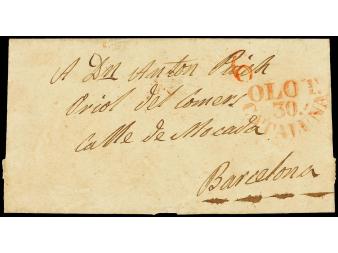 A Dn Anton Puih
Oriol del Comers
Calle de Mocada
Barcelona
OLOT.
30.
CATALUÑA